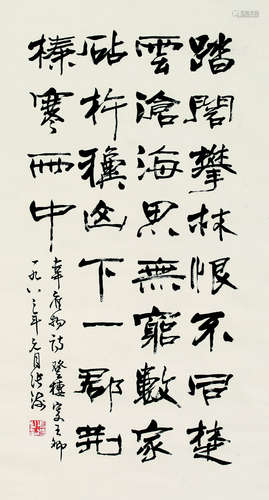 踏閣攀林恨不同楚
雲滄海思無窮數家
砧杵穐山下一郡荊
榛寒雨中
韋应物詩登樓寄王卿
一九八三年元月張海